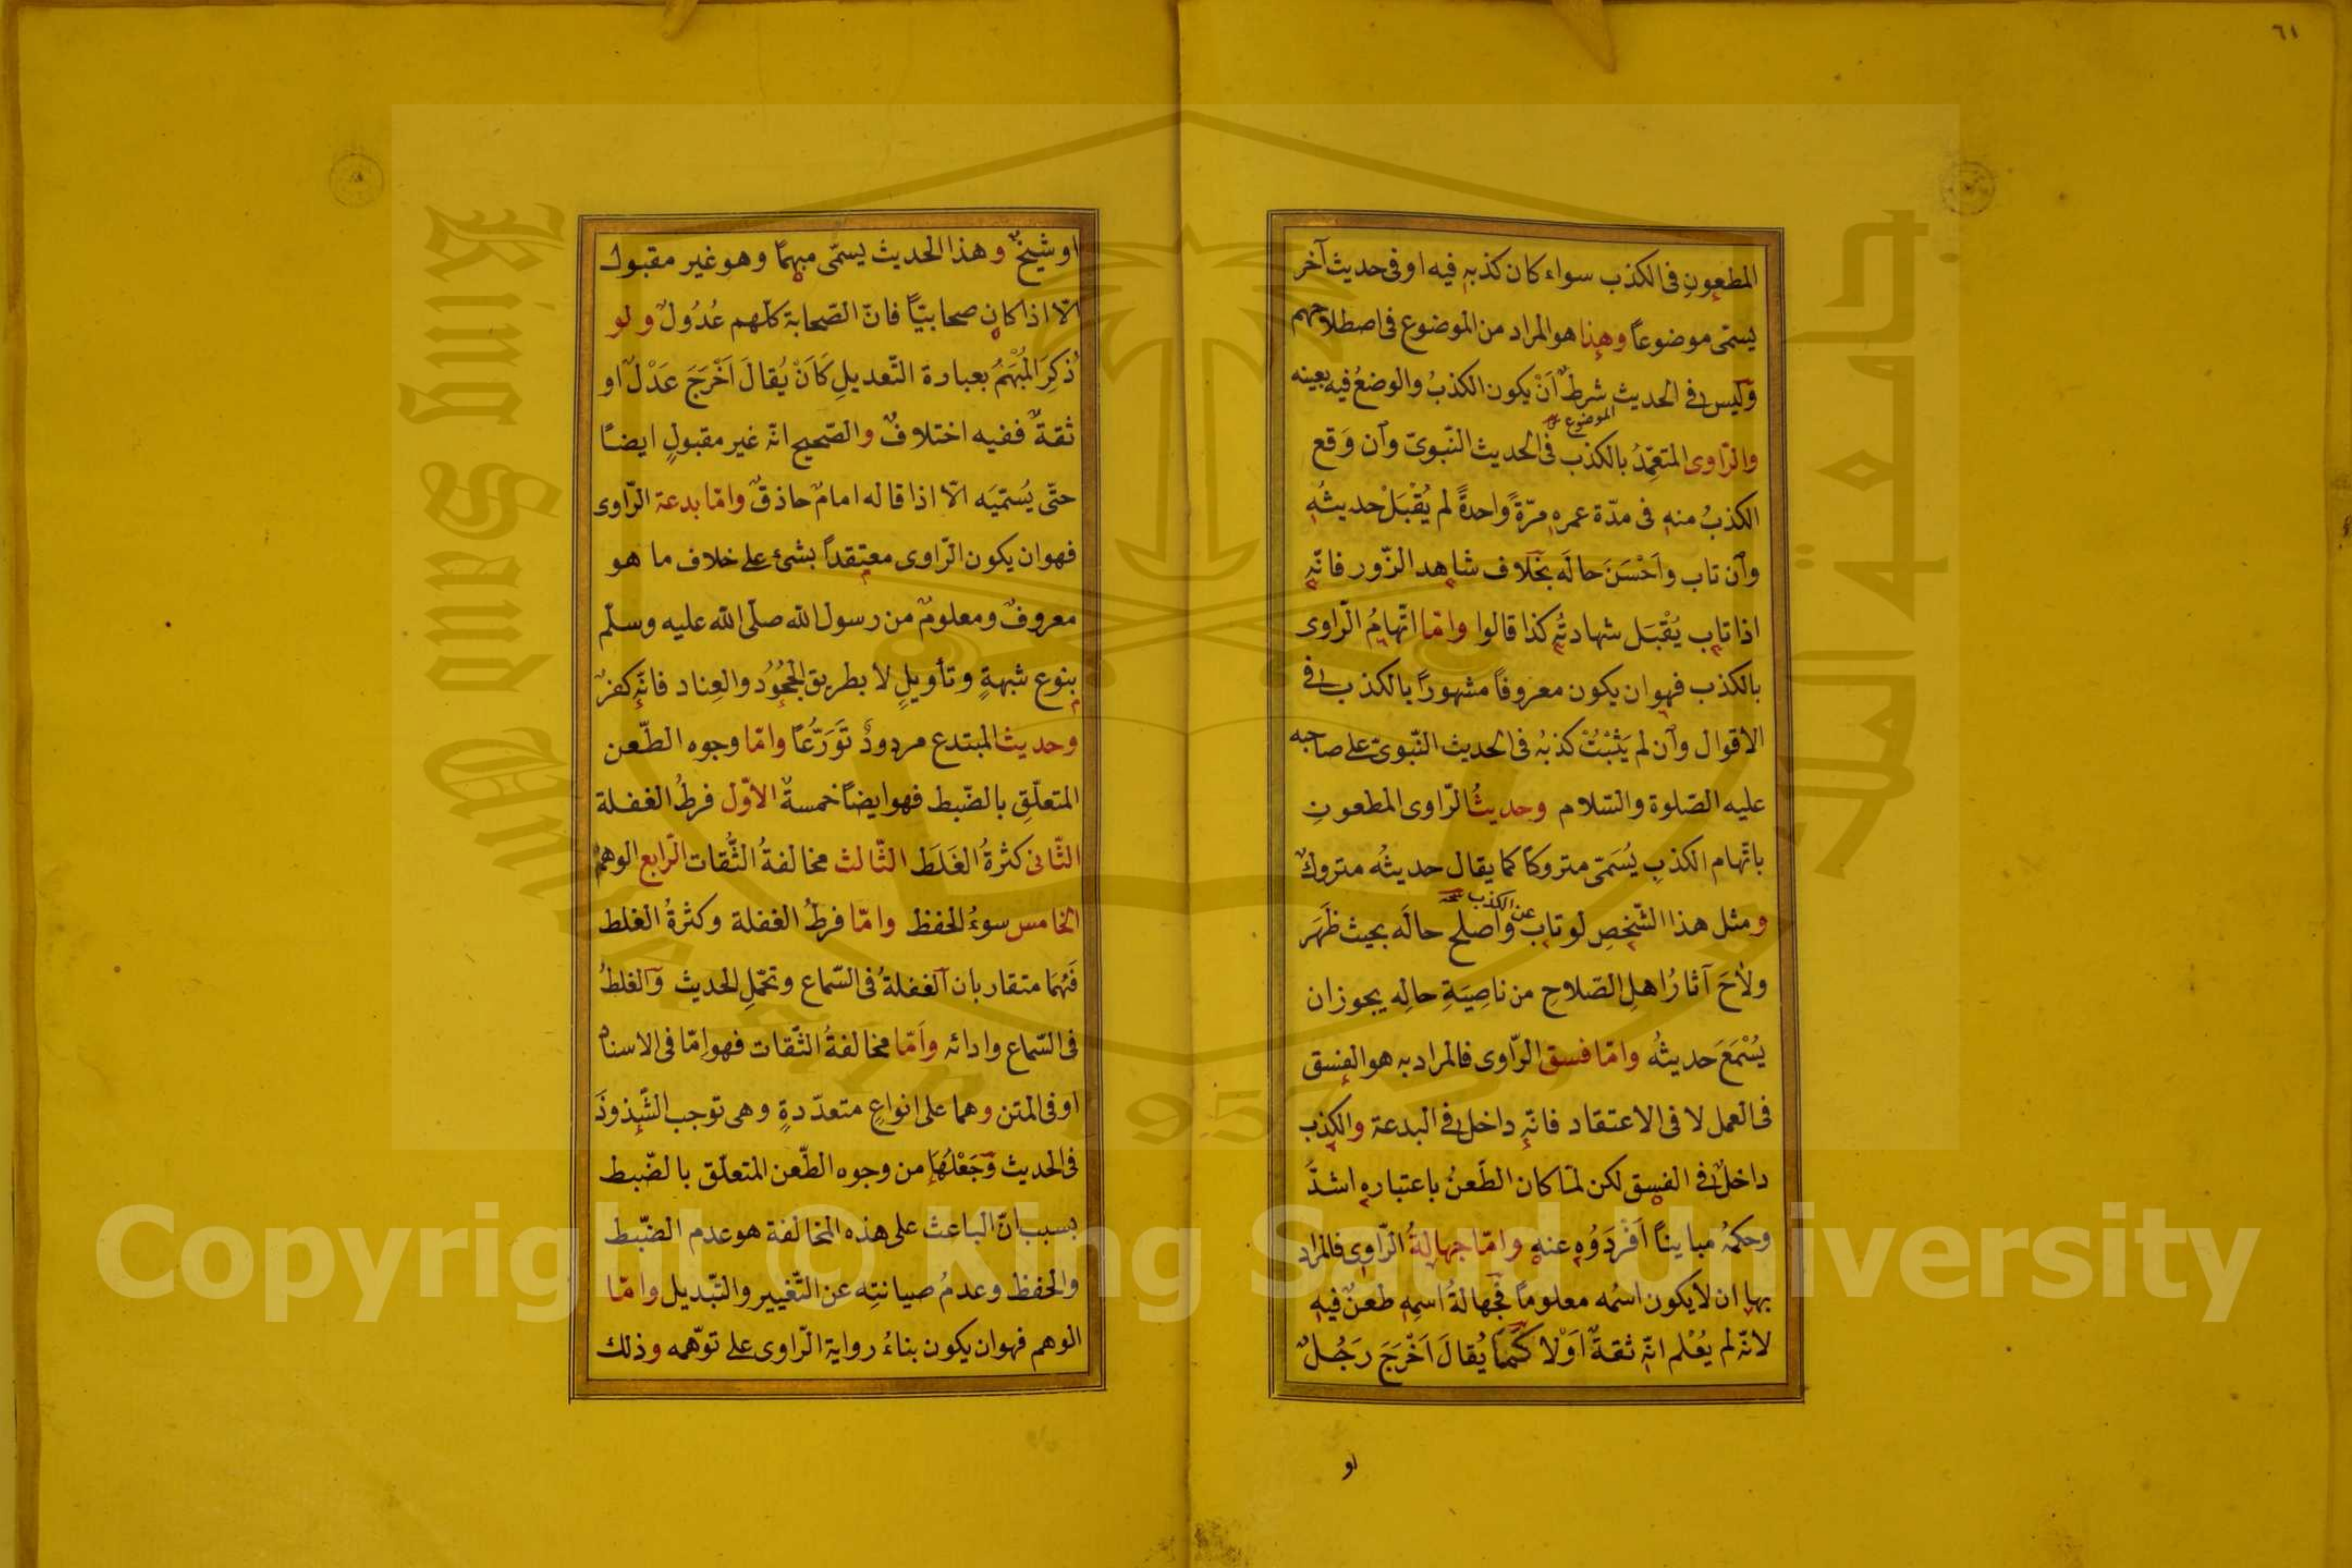 ٦١
المطعونِ فى الكذب سواء كان كذبه فيه او فى حديث آخر
يسمّى موضوعاً وهذا هو المراد من الموضوع فى اصطلاحهم
وليس فى الحديث شرطٌ اَنْ يكون الكذبُ والوضعُ فيه بعينه
الموضوع
والرّاوى المتعمّدُ بالكذب فى الحديث النّبوىّ وان وَقع
الكذبُ منه فى مدّة عمره مرّةً واحدةً لم يُقْبَلْ حديثُه
وان تاب واَحْسَنَ حالَه بخلاف شاهد الزّور فانّه
اذا تاب يُقْبَل شهادتُه كذا قالوا وامّا اتّهامُ الرّاوى
بالكذب فهو ان يكون معروفاً مشهوراً بالكذب فى
الاقوال وان لم يَثْبُتْ كذبُه فى الحديث النّبوىّ على صاحبه
عليه الصّلوة والسّلام وحديثُ الرّاوى المطعونِ
باتّهام الكذبِ يُسَمّى متروكاً كما يقال حديثُه متروكٌ
عن الكذب
ومثل هذا الشّخصِ لو تاب واصلح حالَه بحيث ظَهَرَ
ولاٰحَ آثارُ اهلِ الصّلاحِ من ناصِيَةِ حالِه يجوز ان
يُسْمَعَ حديثُه وامّا فسق الرّاوى فالمراد به هو الفسق
فى العمل لا فى الاعتقاد فانّه داخل فى البدعة والكذب
داخلٌ فى الفسق لكن لمّا كان الطّعنُ باعتباره اشدَّ
وحكمُه مبايناً اَفْرَدَوُه عنه وامّا جهالةُ الرّاوى فالمراد
بها ان لا يكون اسمُه معلوماً فجهالةُ اسمِه طعنٌ فيه
لانّه لم يُعْلم انّه ثقةٌ اَوْلا كَمَا يُقالَ اَخْرَجَ رَجُلٌ
او
او شيخٌ وهذا الحديث يسمّى مبهماً وهو غير مقبول
الّا اذا كان صحابيّاً فانّ الصّحابة كلّهم عُدُولٌ ولو
ذُكِرَ المُبْهَمُ بعبارة التّعديلِ كَاَنْ يُقالَ اَخْرَجَ عَدْلٌ او
ثقةٌ ففيه اختلافٌ والصّحيح انّه غير مقبولٍ ايضاً
حتّى يُسَمِّيَه الّا اذا قاله امامٌ حاذقٌ وامّا بدعة الرّاوى
فهو ان يكون الرّاوى معتقداً بشئ على خلاف ما هو
معروفٌ ومعلومٌ من رسول الله صلّى الله عليه وسلّم
بنوع شبهةٍ وتأويلٍ لا بطريق الجُحُوُدُ والعِناد فانّه كفرٌ
وحديث المبتدع مردودٌ تَوَرُّعاً وامّا وجوه الطّعن
المتعلّقِ بالضّبط فهو ايضاً خمسةٌ الاوّل فرطُ الغفلة
الثّانى كثرةُ الغَلَط الثّالث مخالفةُ الثّقات الرّابع الوهمُ
الخامس سوءُ الحفظ وامّا فرطُ الغفلة وكثرةُ الغلط
فَهُمَا متقاربان الغفلةُ فى السّماع وتحمّلِ الحديث والغلطُ
فى السّماع وادائه واَمّا مخالفةُ الثّقات فهو امّا فى الاسناد
او فى المتن وهما على انواعٍ متعدّدةٍ وهى توجب الشّذوذَ
فى الحديث وَجَعْلُهَا من وجوه الطّعن المتعلّق بالضّبط
بسبب انّ الباعث على هذه المخالفة هو عدم الضّبط
والحفظ وعدمُ صيانتِه عن التّغيير والتّبديل وامّا
الوهم فهو ان يكون بناءُ رواية الرّاوى على توّهمه وذلك
Copyright © King Saud University
King Saud University
جامعة الملك سعود
1957